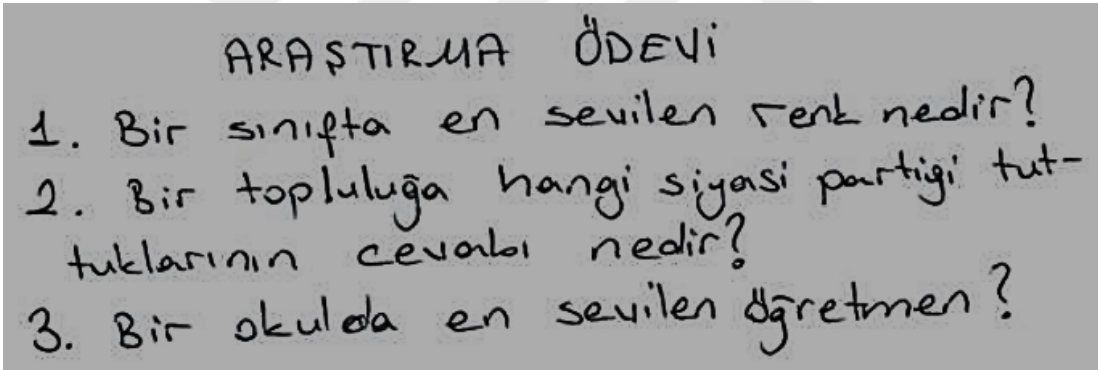 ARAŞTIRMA ÖDEVİ
1. Bir sınıfta en sevilen renk nedir?
2. Bir topluluğa hangi siyasi partiyi tut-
tuklarının cevabı nedir?
3. Bir okulda en sevilen öğretmen?